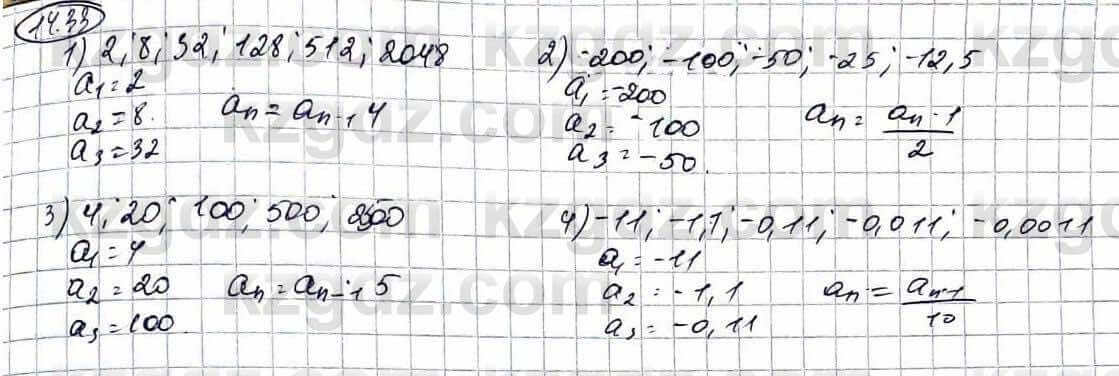 14.33
1) 2; 8; 32; 128; 512; 2048
a₁ = 2
a₂ = 8.
a₃ = 32
aₙ = aₙ₋₁ 4
2) -200; -100; -50; -25; -12,5
a₁ = -200
a₂ = -100
a₃ = -50.
aₙ = aₙ₋₁ / 2
3) 4; 20; 100; 500; 2500
a₁ = 4
a₂ = 20
a₃ = 100.
aₙ = aₙ₋₁ 5
4) -11; -1,1; -0,11; -0,011; -0,0011
a₁ = -11
a₂ = -1,1
a₃ = -0,11
aₙ = aₙ₋₁ / 10
kzgdz.com